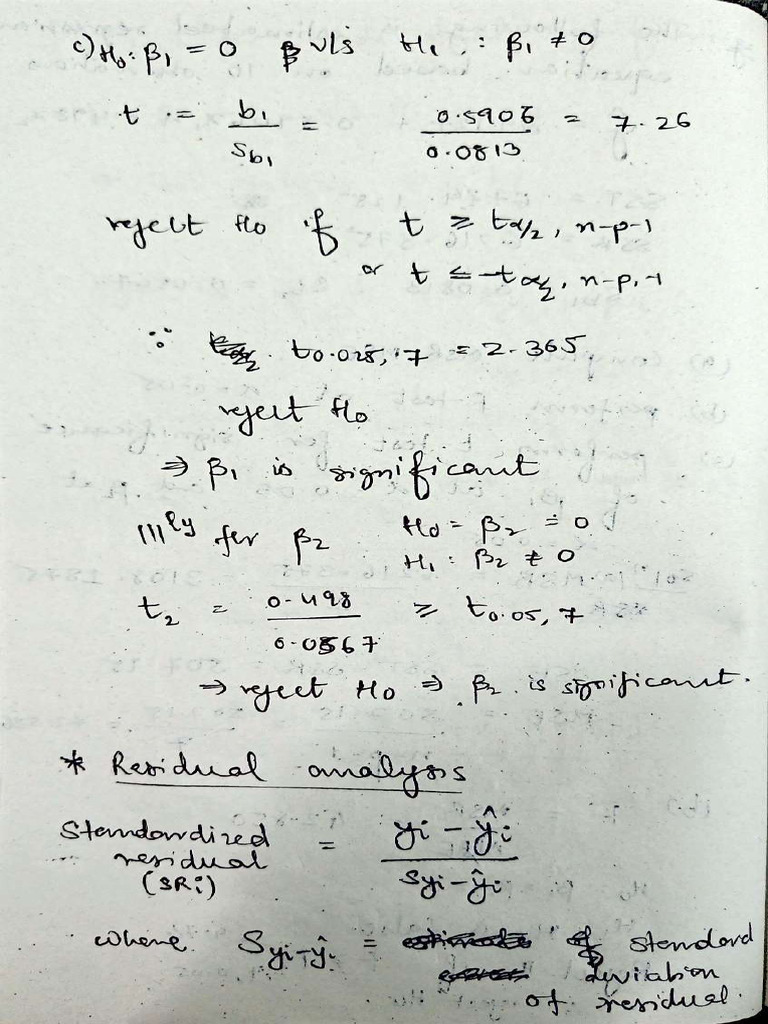 c) H₀: β₁ = 0 v/s H₁ : β₁ ≠ 0
t = b₁ / S_b₁ = 0.5906 / 0.0813 = 7.26
reject H₀ if t ≥ t_α/2, n-p-1
or t ≤ -t_α/2, n-p-1
∵ t₀.₀₂₅, 7 = 2.365
reject H₀
⇒ β₁ is significant
|||ly for β₂ H₀ = β₂ = 0
H₁ : β₂ ≠ 0
t₂ = 0.498 / 0.0567 ≥ t₀.₀₅, 7
⇒ reject H₀ ⇒ β₂ is significant.
* Residual analysis
Standardized residual (SRi) = yi - ŷi / S yi - ŷi
where S yi-ŷi = standard
deviation
of residual.